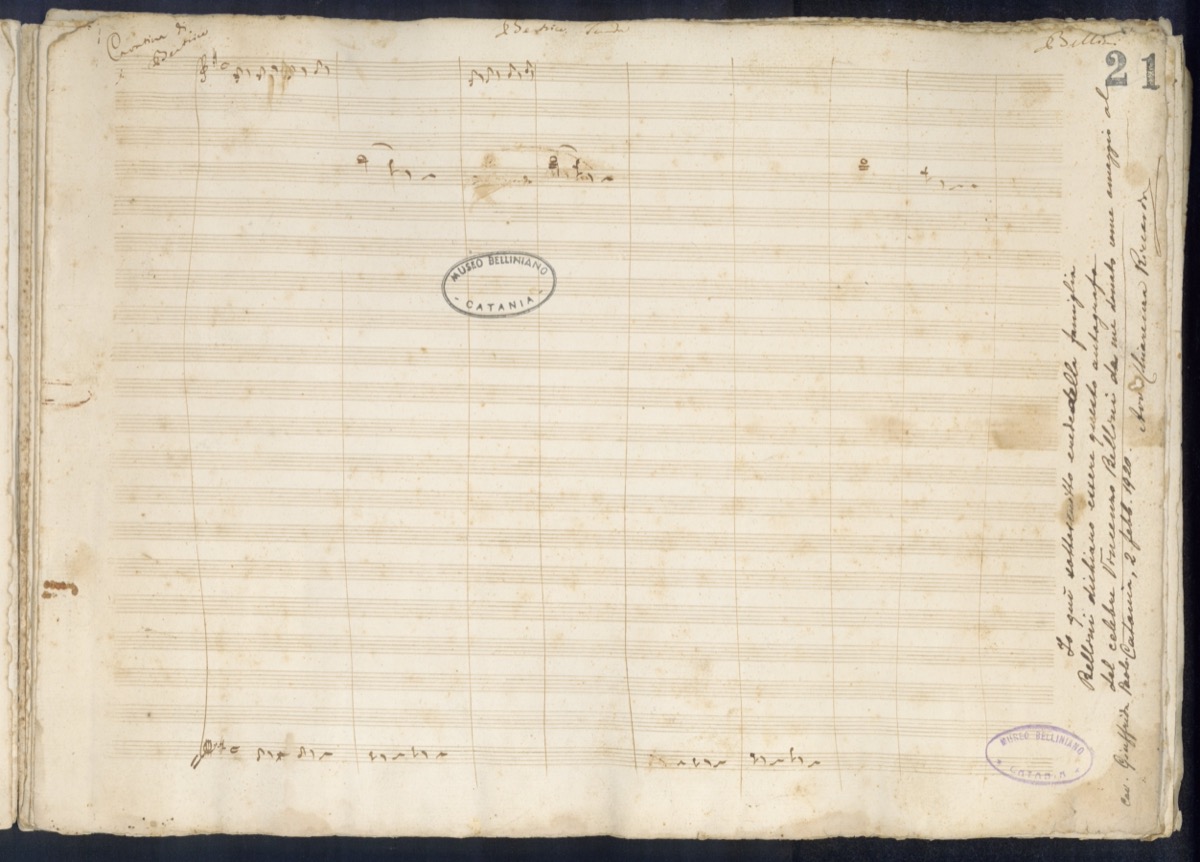 Cavatina di
Beatrice
Bellini
21
MUSEO BELLINIANO
- CATANIA -
Io qui sottoscritto erede della famiglia
Bellini dichiaro essere questo autografo
del celebre Vincenzo Bellini da me donato come omaggio al
Cav. Giuffrida
Catania, 2 febb. 1920.
Chiarenza Riccardo
MUSEO BELLINIANO
CATANIA